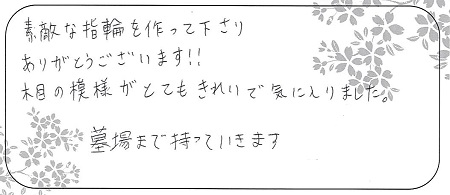 素敵な指輪を作って下さり
ありがとうございます!!
木目の模様がとてもきれいで気に入りました。
墓場まで持っていきます